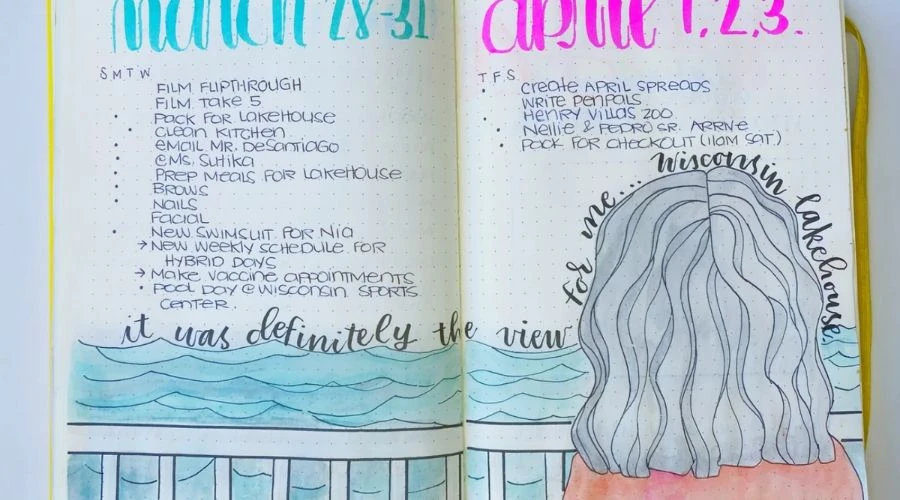 March 28-31
S M T W
FILM FLIPTHROUGH
FILM TAKE 5
PACK FOR LAKEHOUSE
CLEAN KITCHEN
EMAIL MR. DESANTIAGO
@MS. SUHIKA
PREP MEALS FOR LAKEHOUSE
BROWS
NAILS
FACIAL
NEW SWIMSUIT FOR NIA
→ NEW WEEKLY SCHEDULE FOR
HYBRID DAYS
→ MAKE VACCINE APPOINTMENTS
POOL DAY @ WISCONSIN SPORTS
CENTER.
April 1, 2, 3.
T F S
CREATE APRIL SPREADS
WRITE PENPALS
HENRY VILLAS ZOO
NELLIE & PEDRO SR. ARRIVE
PACK FOR CHECKOUT (11AM SAT.)
it was definitely the view
for me... Wisconsin lakehouse.